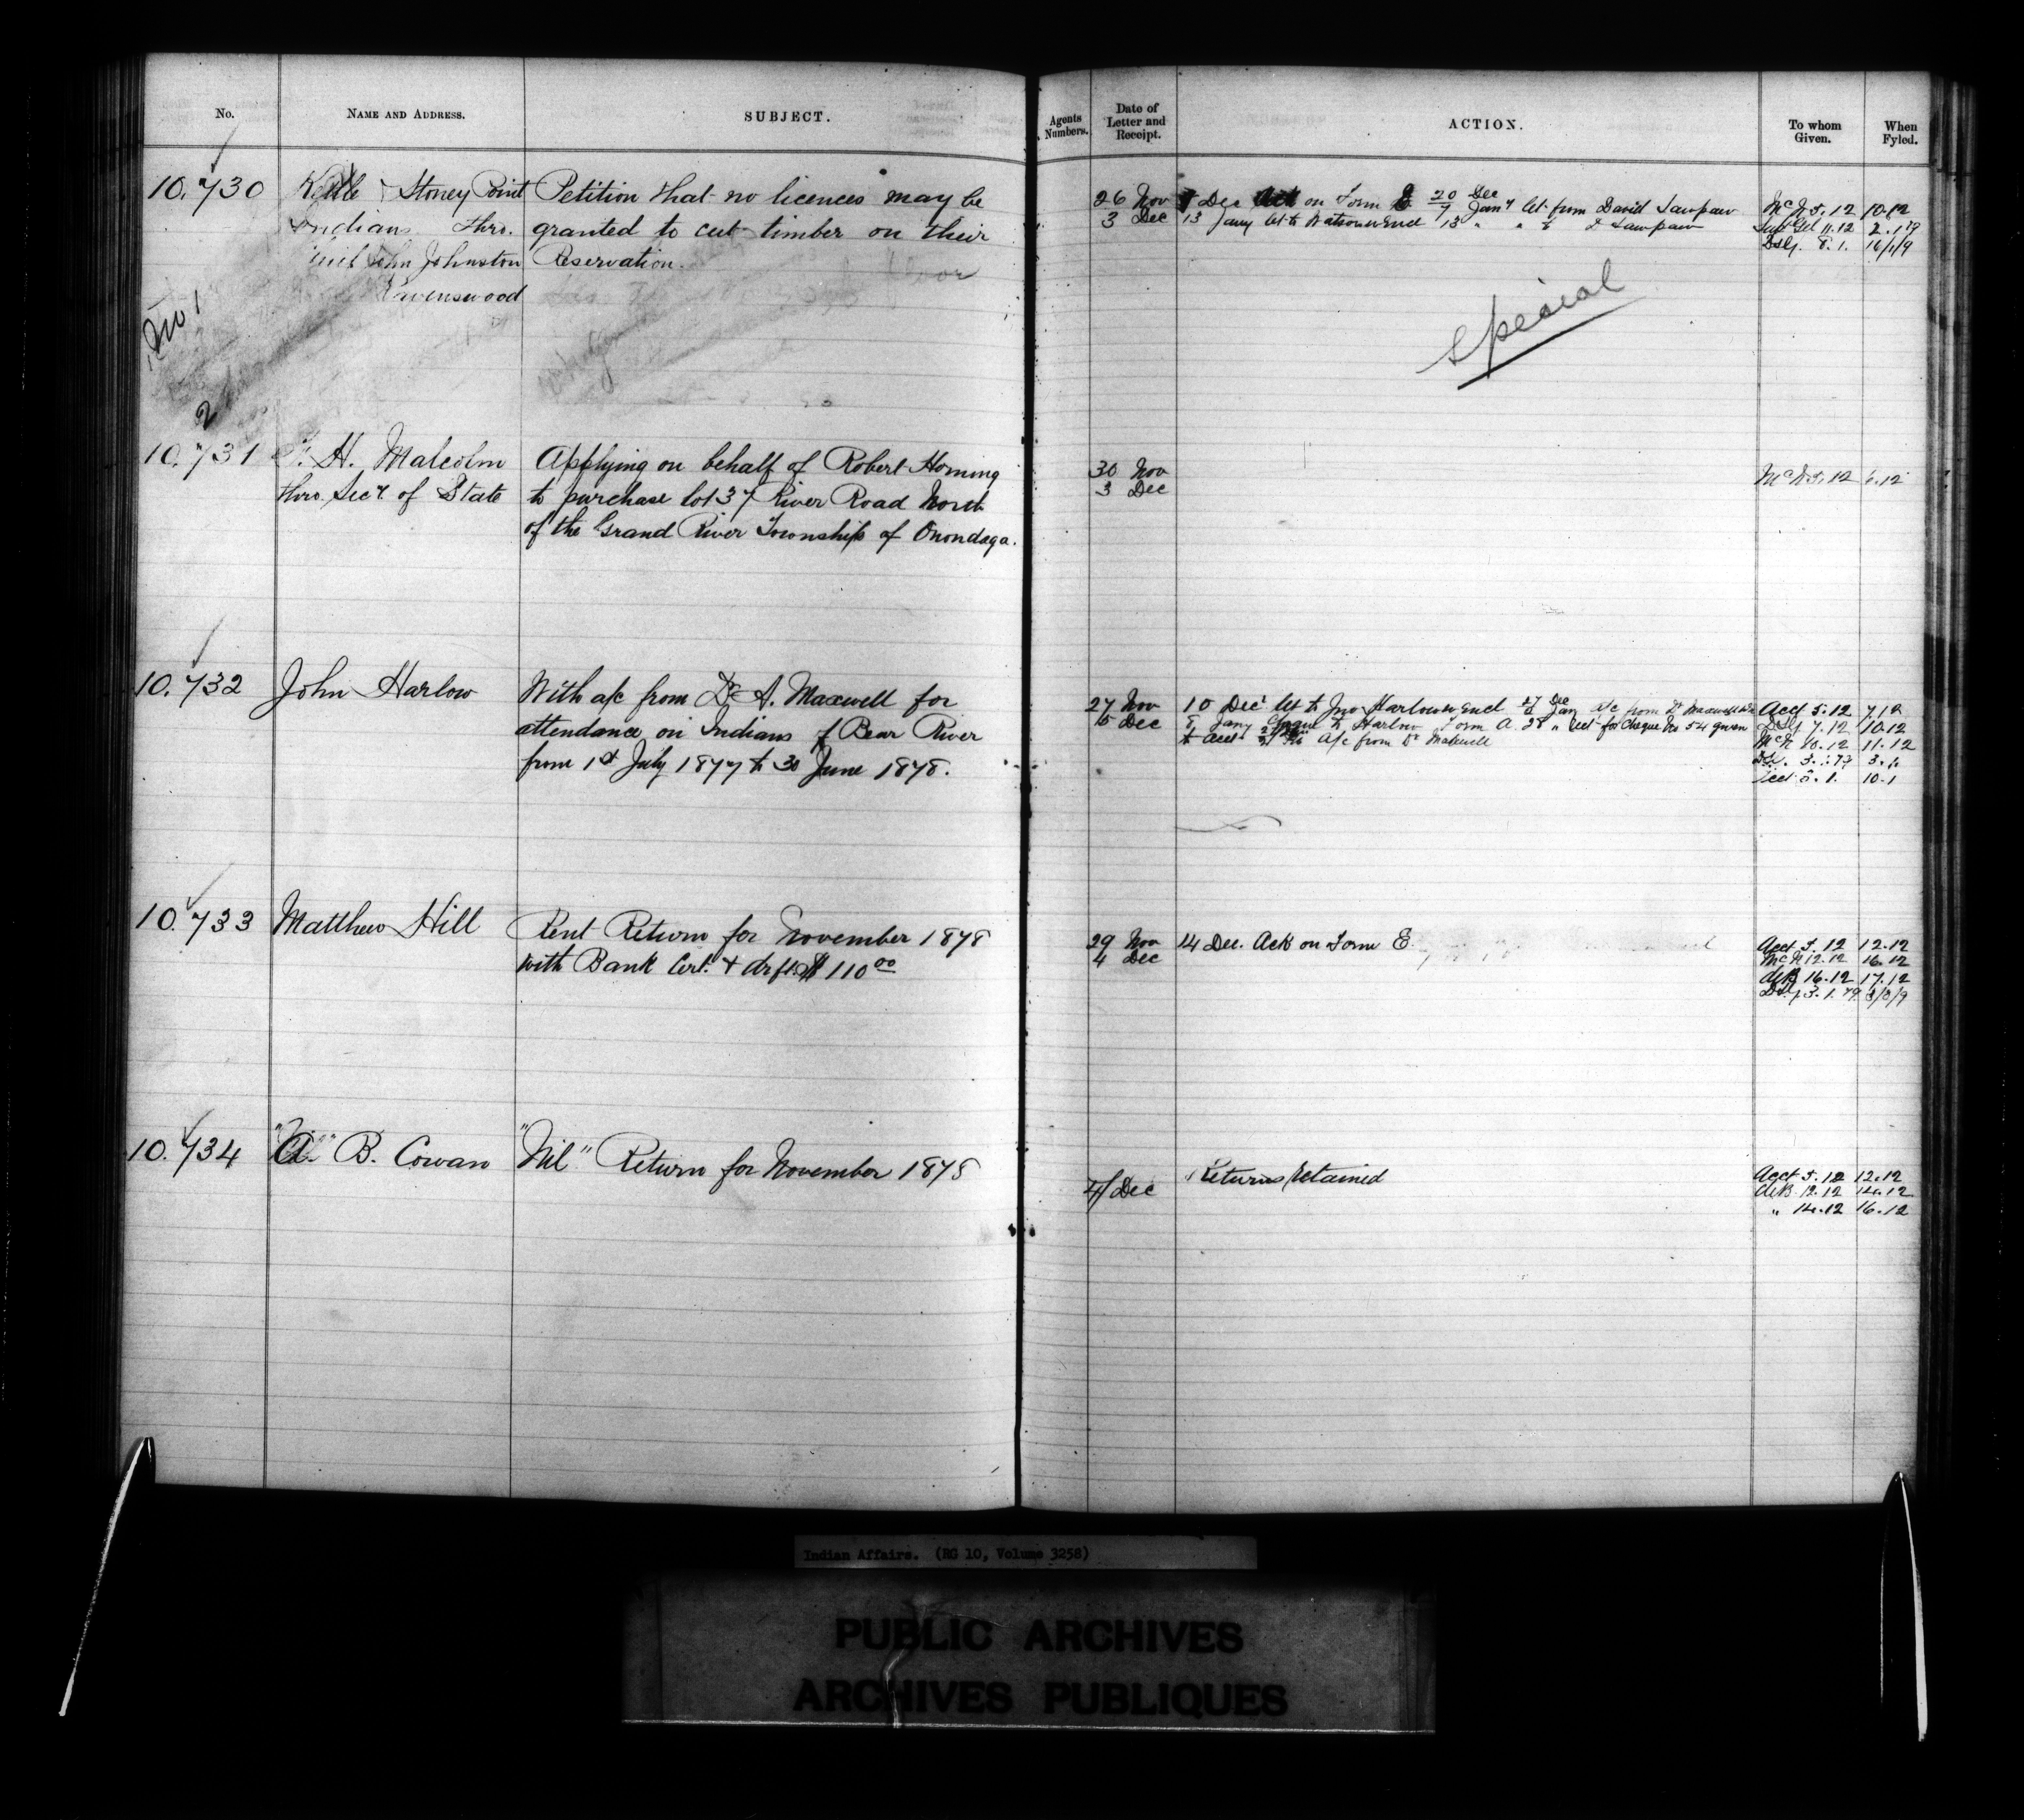 No. NAME AND ADDRESS. SUBJECT. Agents Numbers. Date of Letter and Receipt. ACTION. To whom Given. When Fyled.
10.730 Kettle & Stoney Point Petition that no licences may be
Indians thro. granted to cut timber on their
John Johnston Reservation.
Ravenswood
No 1
2
26 Nov Dec Ack on Form 20 Dec
3 Dec 7 Jany let from David Sawpaw
13 Jany let to Watson w Encl 13 " " D Sawpaw
McN 5.12 10.12
11.12 2.1.79
8.1. 16/1/9
Special
10.731 H. Malcolm Applying on behalf of Robert Horning
thro. Secy. of State to purchase lot 37 River Road North
of the Grand River Township of Onondaga.
30 Nov
3 Dec
McN 5.12 6.12
10.732 John Harlow With a/c from Dr A. Maxwell for
attendance on Indians of Bear River
from 1st July 1877 to 30 June 1878.
27 Nov 10 Decr let to Jno. Harlow w Encl 27 Dec a/c from Dr Maxwell
5 Dec 8 Jany Cheque to Harlow Form A. 28 " let for Cheque No 54 given
to Acct a/c from Dr Maxwell
Acct 5.12 7.12
7.12 10.12
McN 10.12 11.12
3.1.79 3.1.
Acct 3.1. 10.1
10.733 Matthew Hill Rent Return for November 1878
with Bank Cert. & drft. $110 00
29 Nov 14 Dec. Ack on Form E
4 Dec
Acct 5.12 12.12
McN 12.12 16.12
16.12 17.12
3.1.79
10.734 "A." B. Cowan "Nil" Return for November 1878
4/Dec Returns retained
Acct 5.12 12.12
12.12 14.12
" 14.12 16.12
Indian Affairs. (RG 10, Volume 3258)
PUBLIC ARCHIVES
ARCHIVES PUBLIQUES